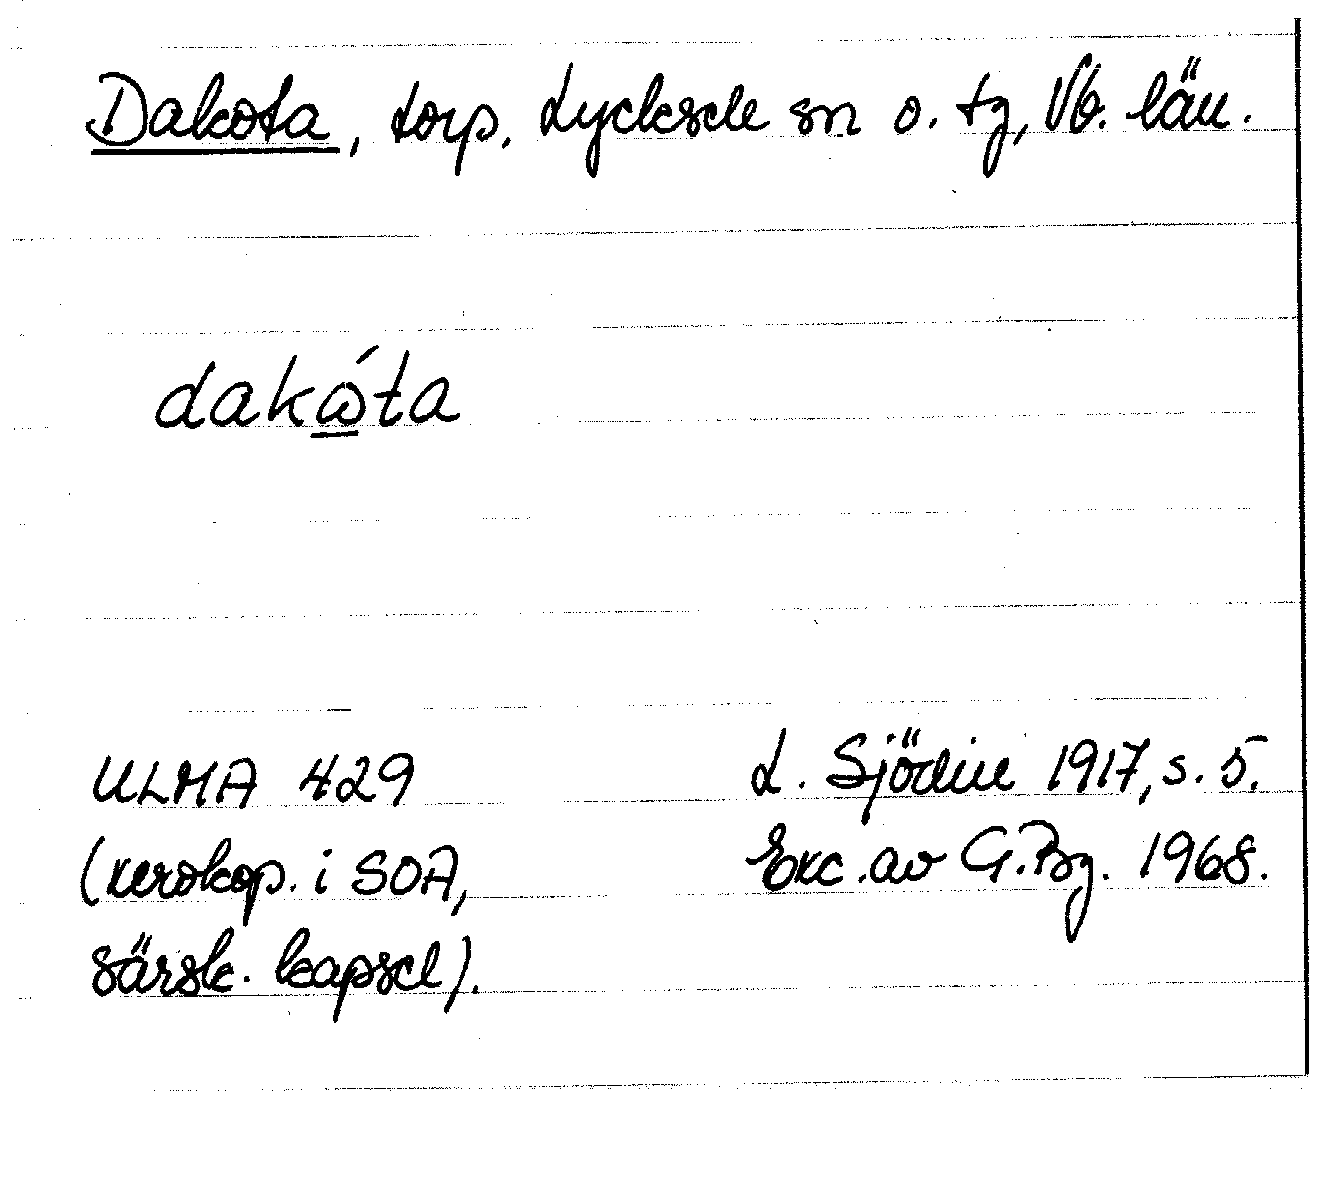 Dakota, torp, Lycksele sn o. tg, Vb. län.
dakώ̲ta
ULMA 429
(xerokop. i SOA,
särsk. kapsel).
L. Sjödin 1917, s. 5.
Exc. av G. Bg. 1968.